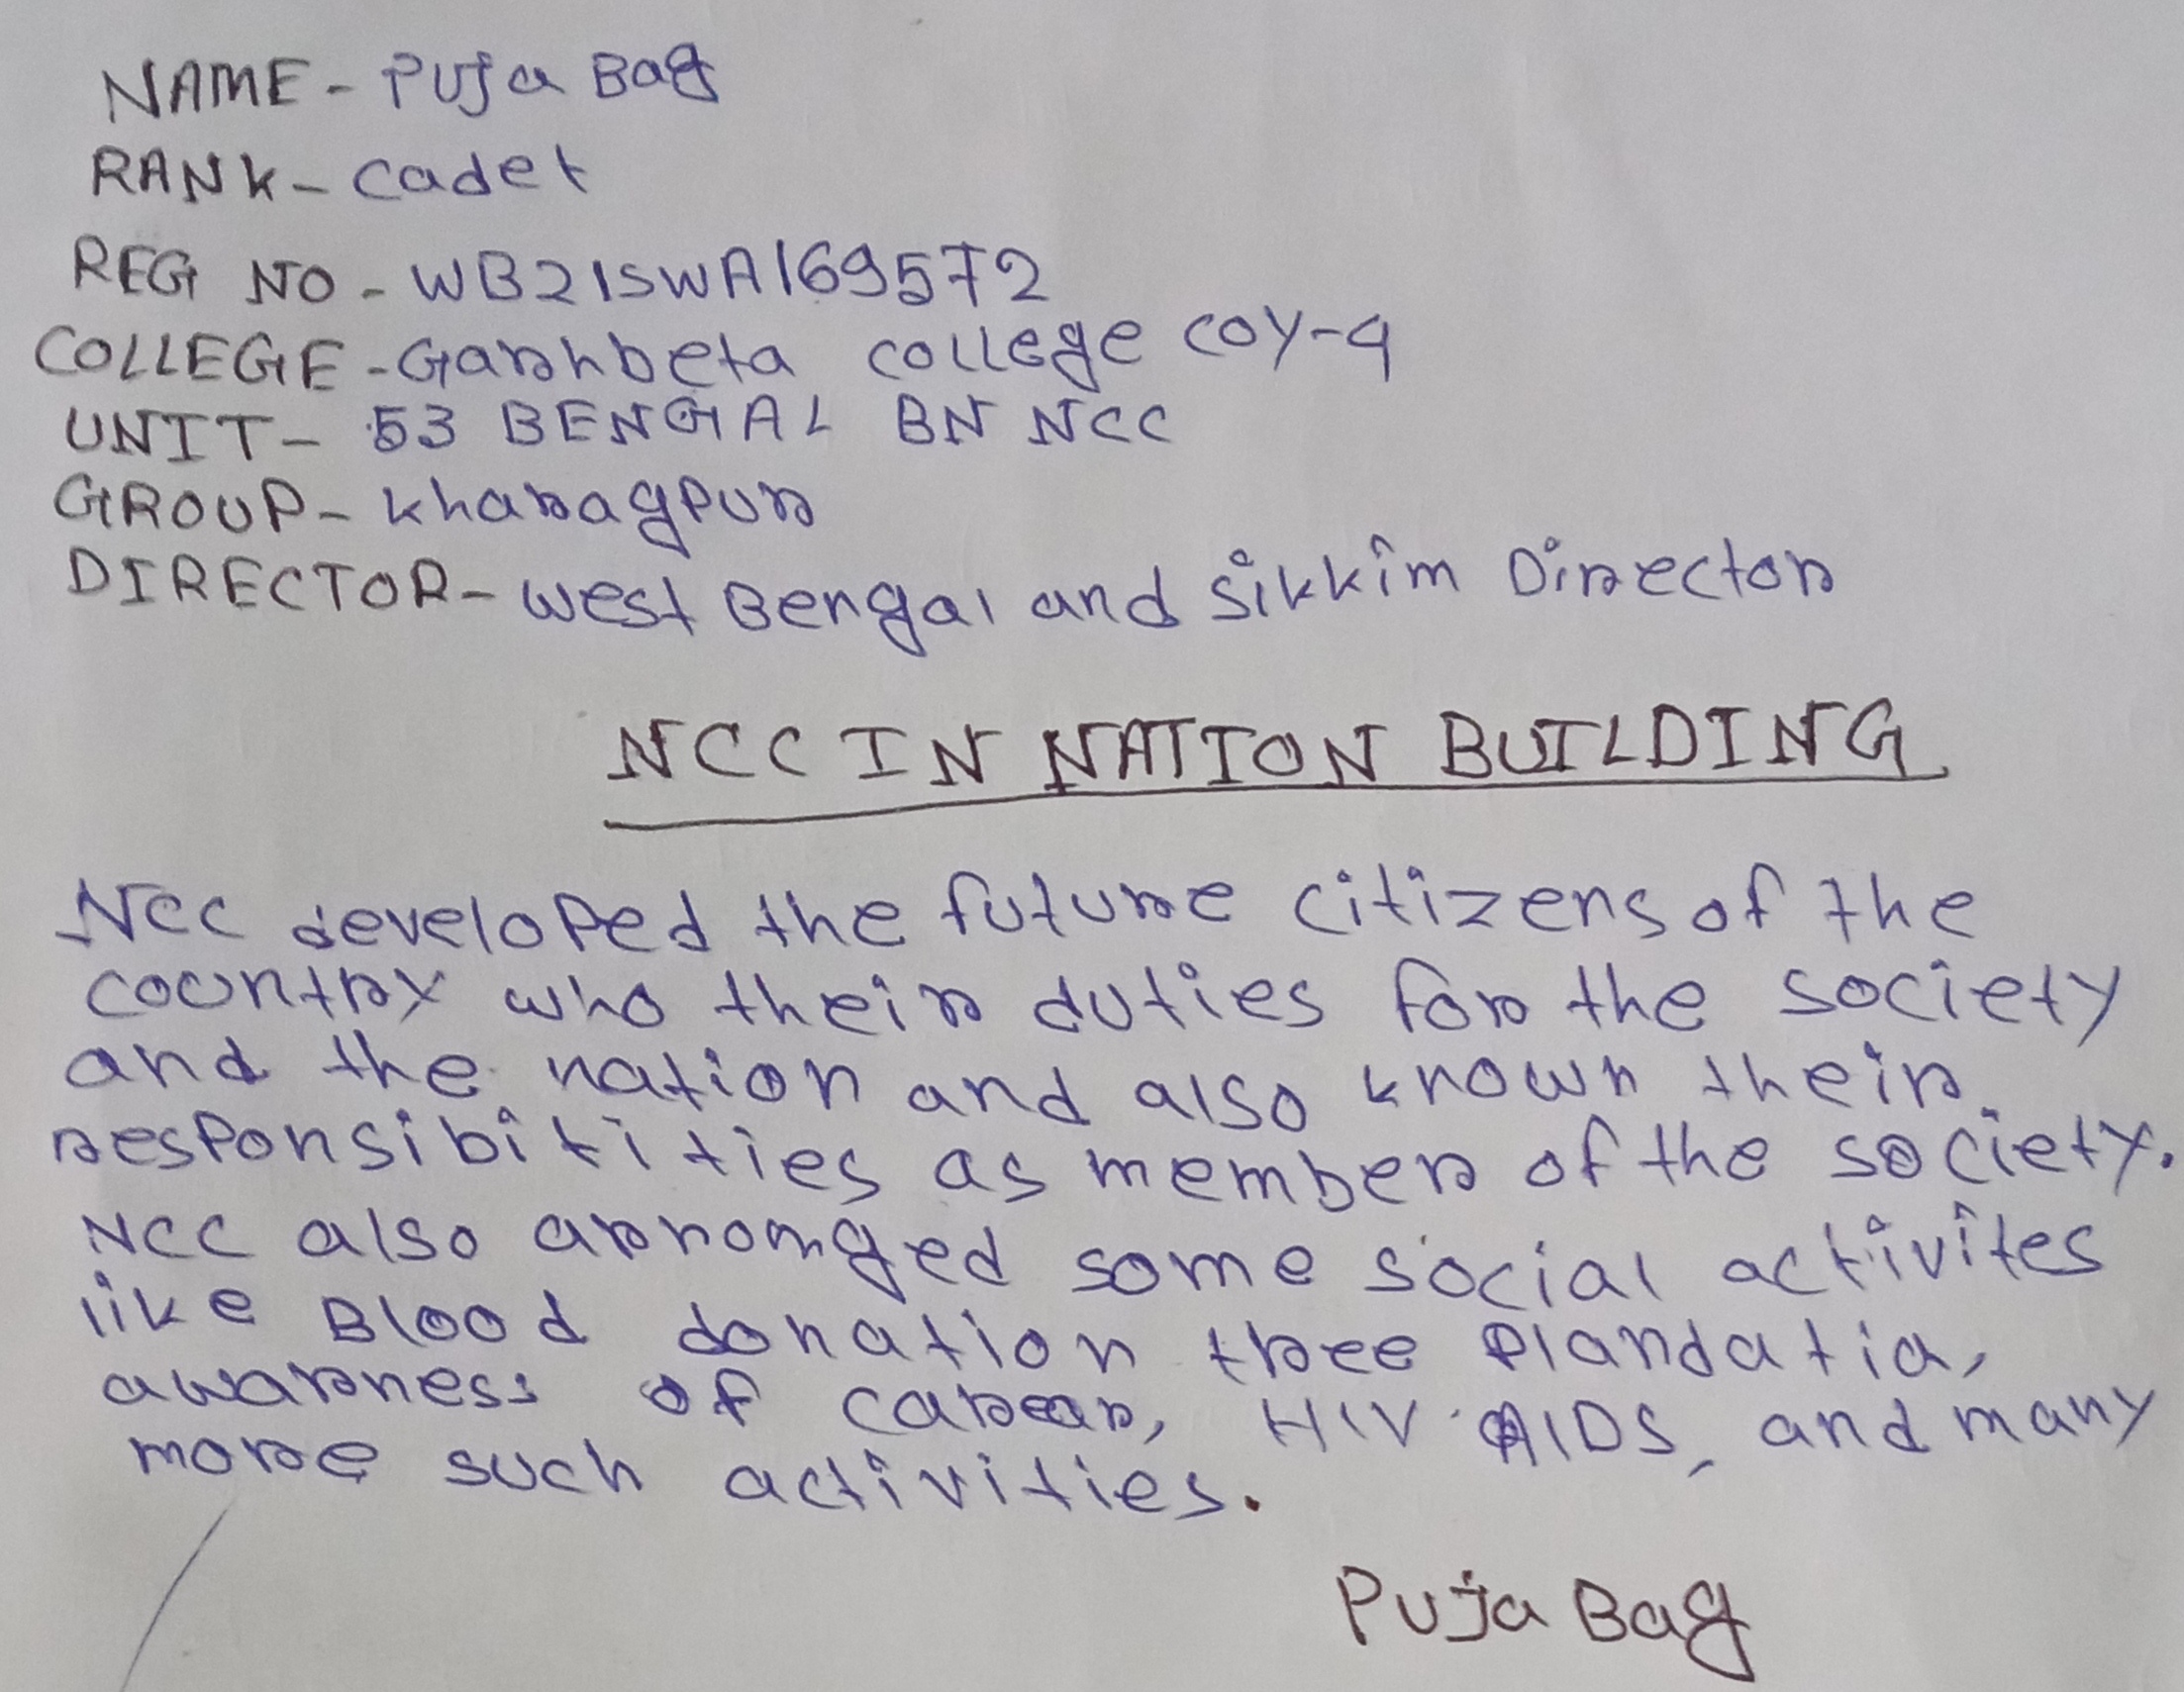 NAME - Puja Bag
RANK - Cadet
REG NO - WB21SWA169572
COLLEGE - Garhbeta college coy-9
UNIT - 53 BENGAL BN NCC
GROUP - kharagpur
DIRECTOR - west Bengal and Sikkim Director
NCC IN NATION BUILDING
NCC developed the future citizens of the
country who their duties for the society
and the nation and also known their
responsibitities as member of the society.
NCC also arranged some social activites
like Blood donation tree Plandatia,
awarness of HIV AIDS, and many
more such activities.
Puja Bag